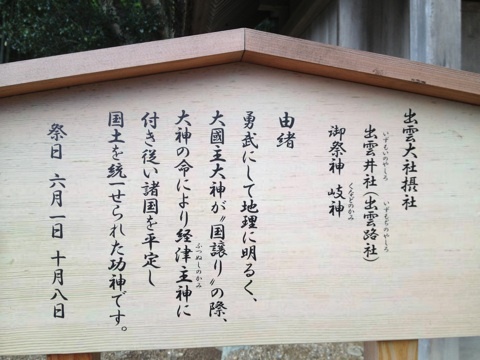 出雲大社摂社
いずもいのやしろ いずもぢのやしろ
出雲井社(出雲路社)
くなどのかみ
御祭神 岐神
由緒
勇武にして地理に明るく、
大國主大神が〝国譲り〟の際、
大神の命により経津主神に
ふつぬしのかみ
付き従い諸国を平定し
国土を統一せられた功神です。
祭日 六月一日 十月八日